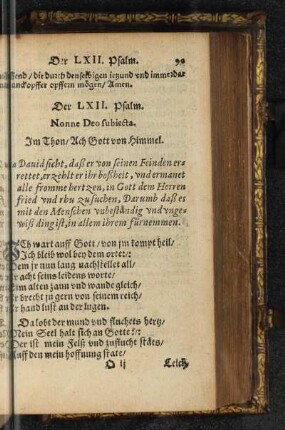 Der LXII. Psalm. 90
dir durch denselbigen jetzund vnd immerdar
danckopffer opffern mögen/ Amen.
Der LXII. Psalm.
Nonne Deo subiecta.
Im Thon/ Ach Gott von Himmel.
Dauid sicht, daß er von seinen Feinden er-
rettet, erzehlt er ihr boßheit, vnd ermanet
alle fromme hertzen, in Gott dem Herren
fried vnd rhu zu suchen, Darumb daß es
mit den Menschen vnbeständig vnd vnge-
wiß ding ist, in allem ihrem fürnemmen.
Ich wart auff Gott/ von jm kompt heil/
Ich bleib wol bey dem orte:/:
Dem jr nun lang nachstellet all/
acht seins leidens worte/
Eim alten zaun vnd wande gleich/
brecht jr gern von seinem reich/
hand lust an der lugen.
Da lobt der mund vnd fluchets hertz/
Mein Seel halt sich an Gotte:/:
Der ist mein Felß vnd zuflucht stäts/
Auff den mein hoffnung state/
O ij